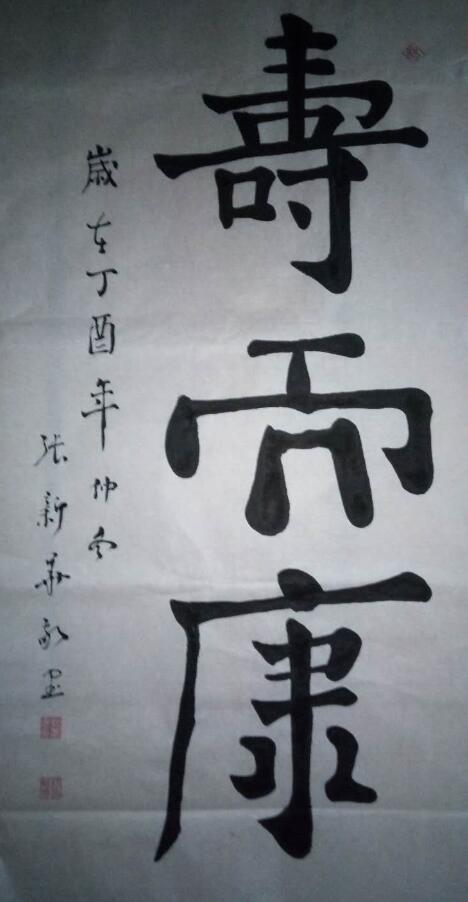 壽而康
歲在丁酉年仲冬
張新華敬墨